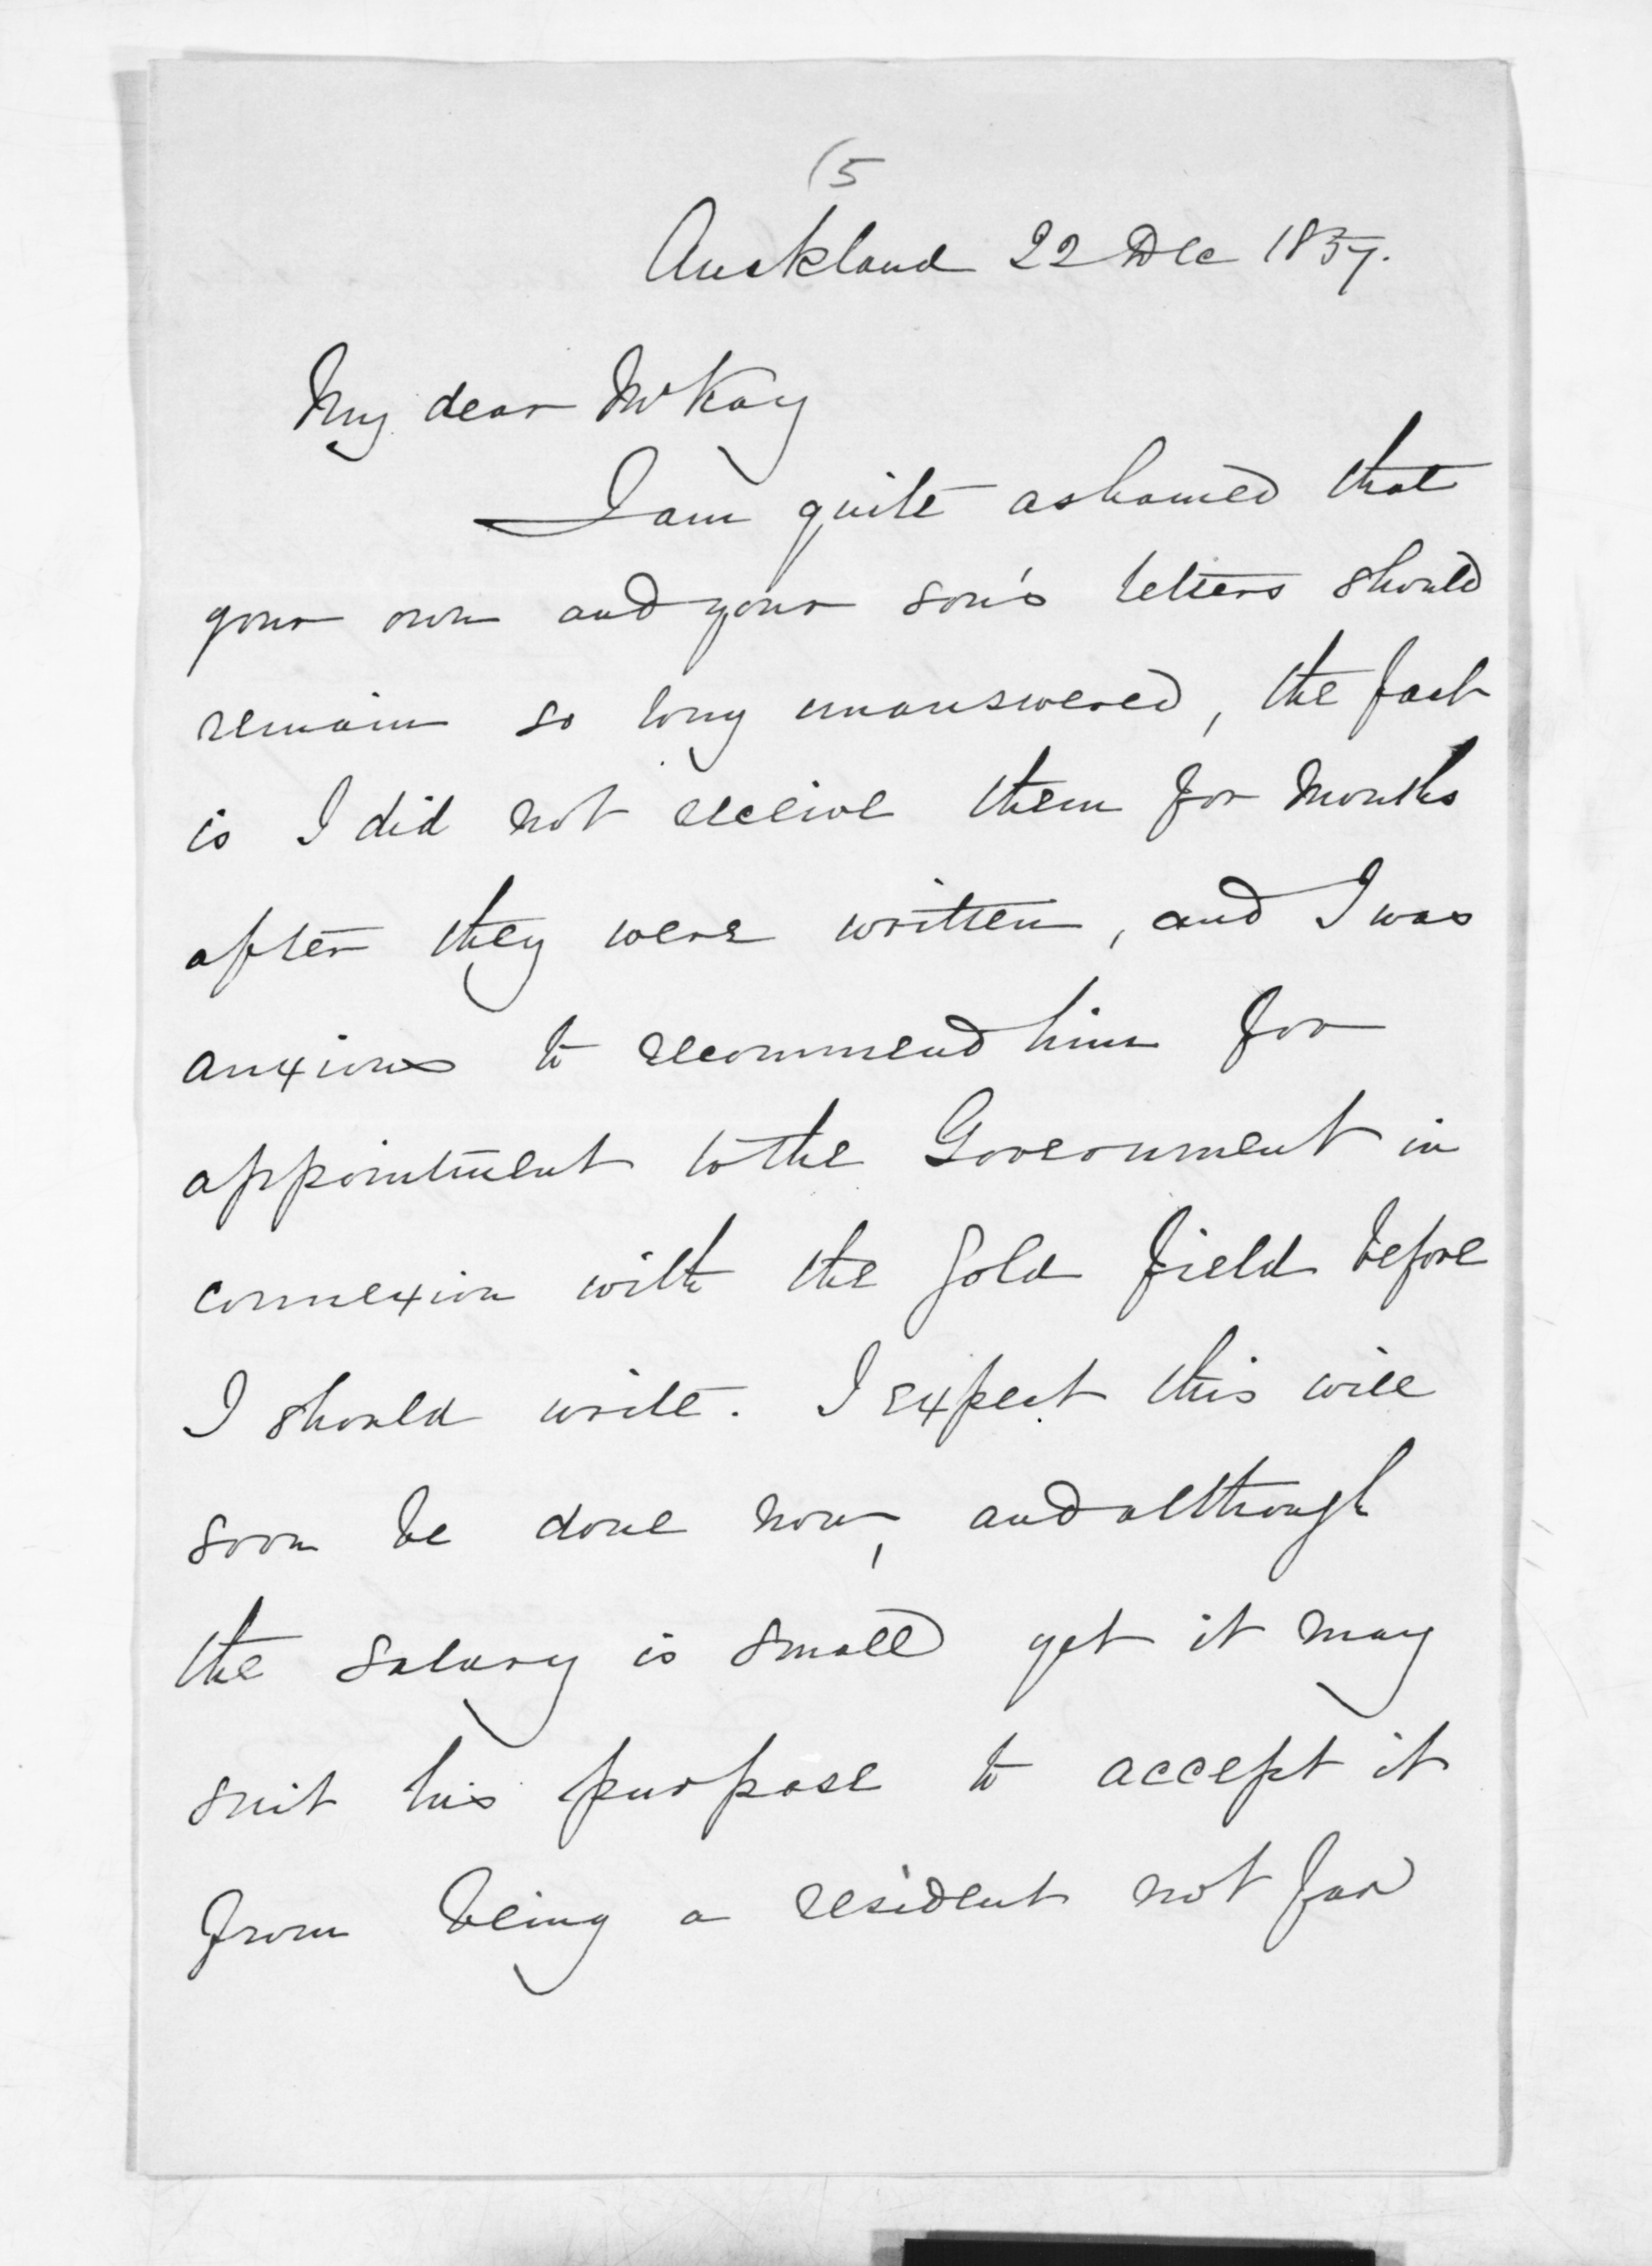 (5
Auckland 22 Dec 1857.
My dear McKay
I am quite ashamed that
your own and your son's letters should
remain so long unanswered, the fact
is I did not receive them for months
after they were written, and I was
anxious to recommend him for
appointment to the Government in
connexion with the Gold field before
I should write. I expect this will
soon be done now, and although
the salary is small yet it may
suit his purpose to accept it
from being a resident not far